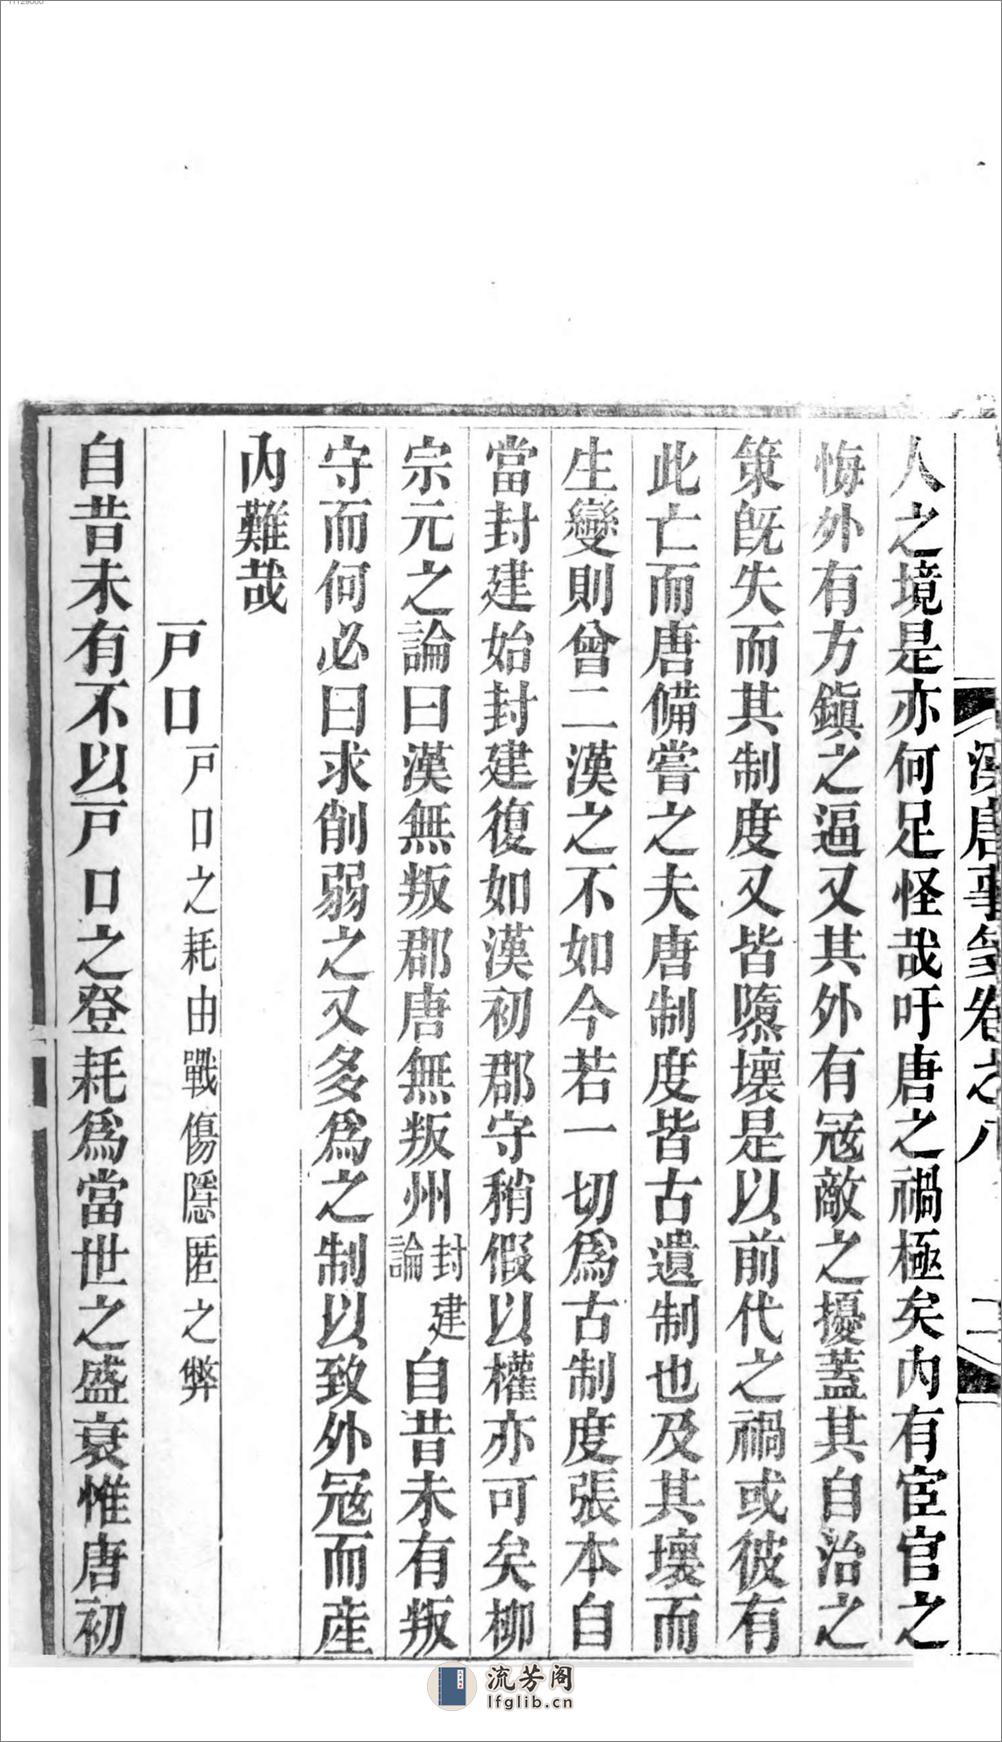 漢唐事箋卷之八
二
人之境是亦何足怪哉吁唐之禍極矣內有宦官之
悔外有方鎮之逼又其外有冦敵之擾蓋其自治之
策旣失而其制度又皆隳壞是以前代之禍或彼有
此亡而唐備嘗之夫唐制度皆古遺制也及其壞而
生變則曾二漢之不如今若一切爲古制度張本自
當封建始封建復如漢初郡守稍假以權亦可矣柳
宗元之論曰漢無叛郡唐無叛州封建論自昔未有叛
守而何必曰求削弱之又多爲之制以致外冦而産
內難哉
戸口戸口之耗由戰傷隱匿之弊
自昔未有不以戸口之登耗爲當世之盛衰惟唐初
流芳阁
lfglib.cn